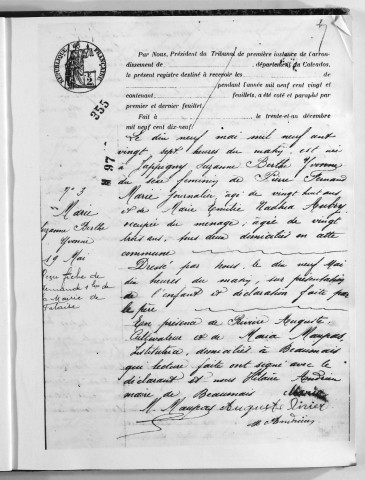 Par Nous, Président du Tribunal de première instance de l'arron-
dissement de département du Calvados,
le présent registre destiné à recevoir les de
pendant l'année mil neuf cent vingt et
contenant feuillets, a été coté et paraphé par
premier et dernier feuillet.
Fait à le trente-et-un décembre
mil neuf cent dix-neuf.
RÉPUBLIQUE FRANÇAISE
355
H 97
N° 3
Marie
Suzanne Berthe
Yvonne
19 Mai
Le dix neuf mai mil neuf cent
vingt sept heures du matin est née
à Suzanne Berthe Yvonne
du sexe féminin de Pierre
Marie journalier, âgé de vingt huit ans,
et de Marie Emilie Aubry
occupée du ménage, âgée de vingt
trois ans, tous deux domiciliés en cette
commune
Dressé par nous, le dix neuf Mai
heures du matin, sur présentation
de l'enfant et déclaration faite par
le père
En présence de Auguste
Cultivateur et de Maria Maupas,
Institutrice, domiciliés à Beaumais
qui lecture faite ont signé avec le
déclarant et nous Hilaire Andrieu
maire de Beaumais Marie
M. Maupas Auguste
Andrieu